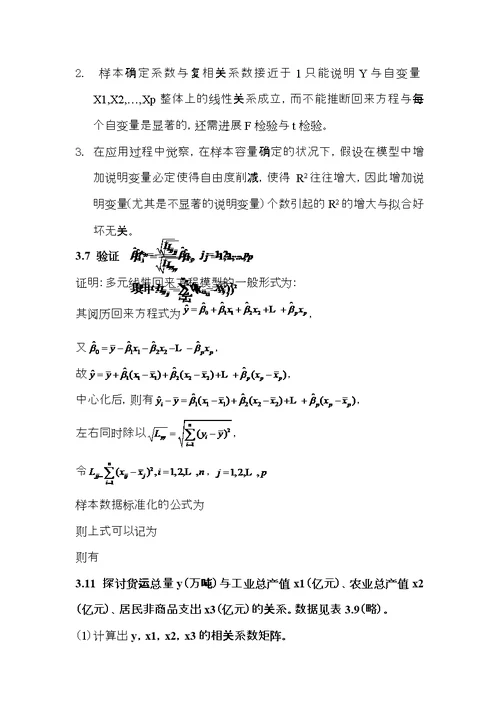 2. 样本确定系数与复相关系数接近于1只能说明Y与自变量
X1,X2,…,Xp整体上的线性关系成立，而不能推断回来方程与每
个自变量是显著的，还需进展F检验与t检验。
3. 在应用过程中觉察，在样本容量确定的状况下，假设在模型中增
加说明变量必定使得自由度削减，使得 R²往往增大，因此增加说
明变量(尤其是不显著的说明变量)个数引起的R²的增大与拟合好
坏无关。
3.7 验证
证明：多元线性回来方程模型的一般形式为：
其阅历回来方程式为ŷ = β̂₀ + β̂₁x₁ + β̂₂x₂ + L + β̂ₚxₚ，
又β̂₀ = ȳ − β̂₁x̄₁ − β̂₂x̄₂ − L − β̂ₚx̄ₚ，
故ŷ = ȳ + β̂₁(x₁ − x̄₁) + β̂₂(x₂ − x̄₂) + L + β̂ₚ(xₚ − x̄ₚ)，
中心化后，则有ŷᵢ − ȳ = β̂₁(x₁ − x̄₁) + β̂₂(x₂ − x̄₂) + L + β̂ₚ(xₚ − x̄ₚ)，
左右同时除以√Lyy = √∑ⁿᵢ₌₁(yᵢ − ȳ)²，
令Ljj=∑ⁿᵢ₌₁(xᵢⱼ − x̄ⱼ)², i = 1,2,L ,n，j = 1,2,L ,p
样本数据标准化的公式为
则上式可以记为
则有
3.11 探讨货运总量y(万吨)与工业总产值x1(亿元)、农业总产值x2
(亿元)、居民非商品支出x3(亿元)的关系。数据见表3.9(略)。
(1)计算出y，x1，x2，x3的相关系数矩阵。